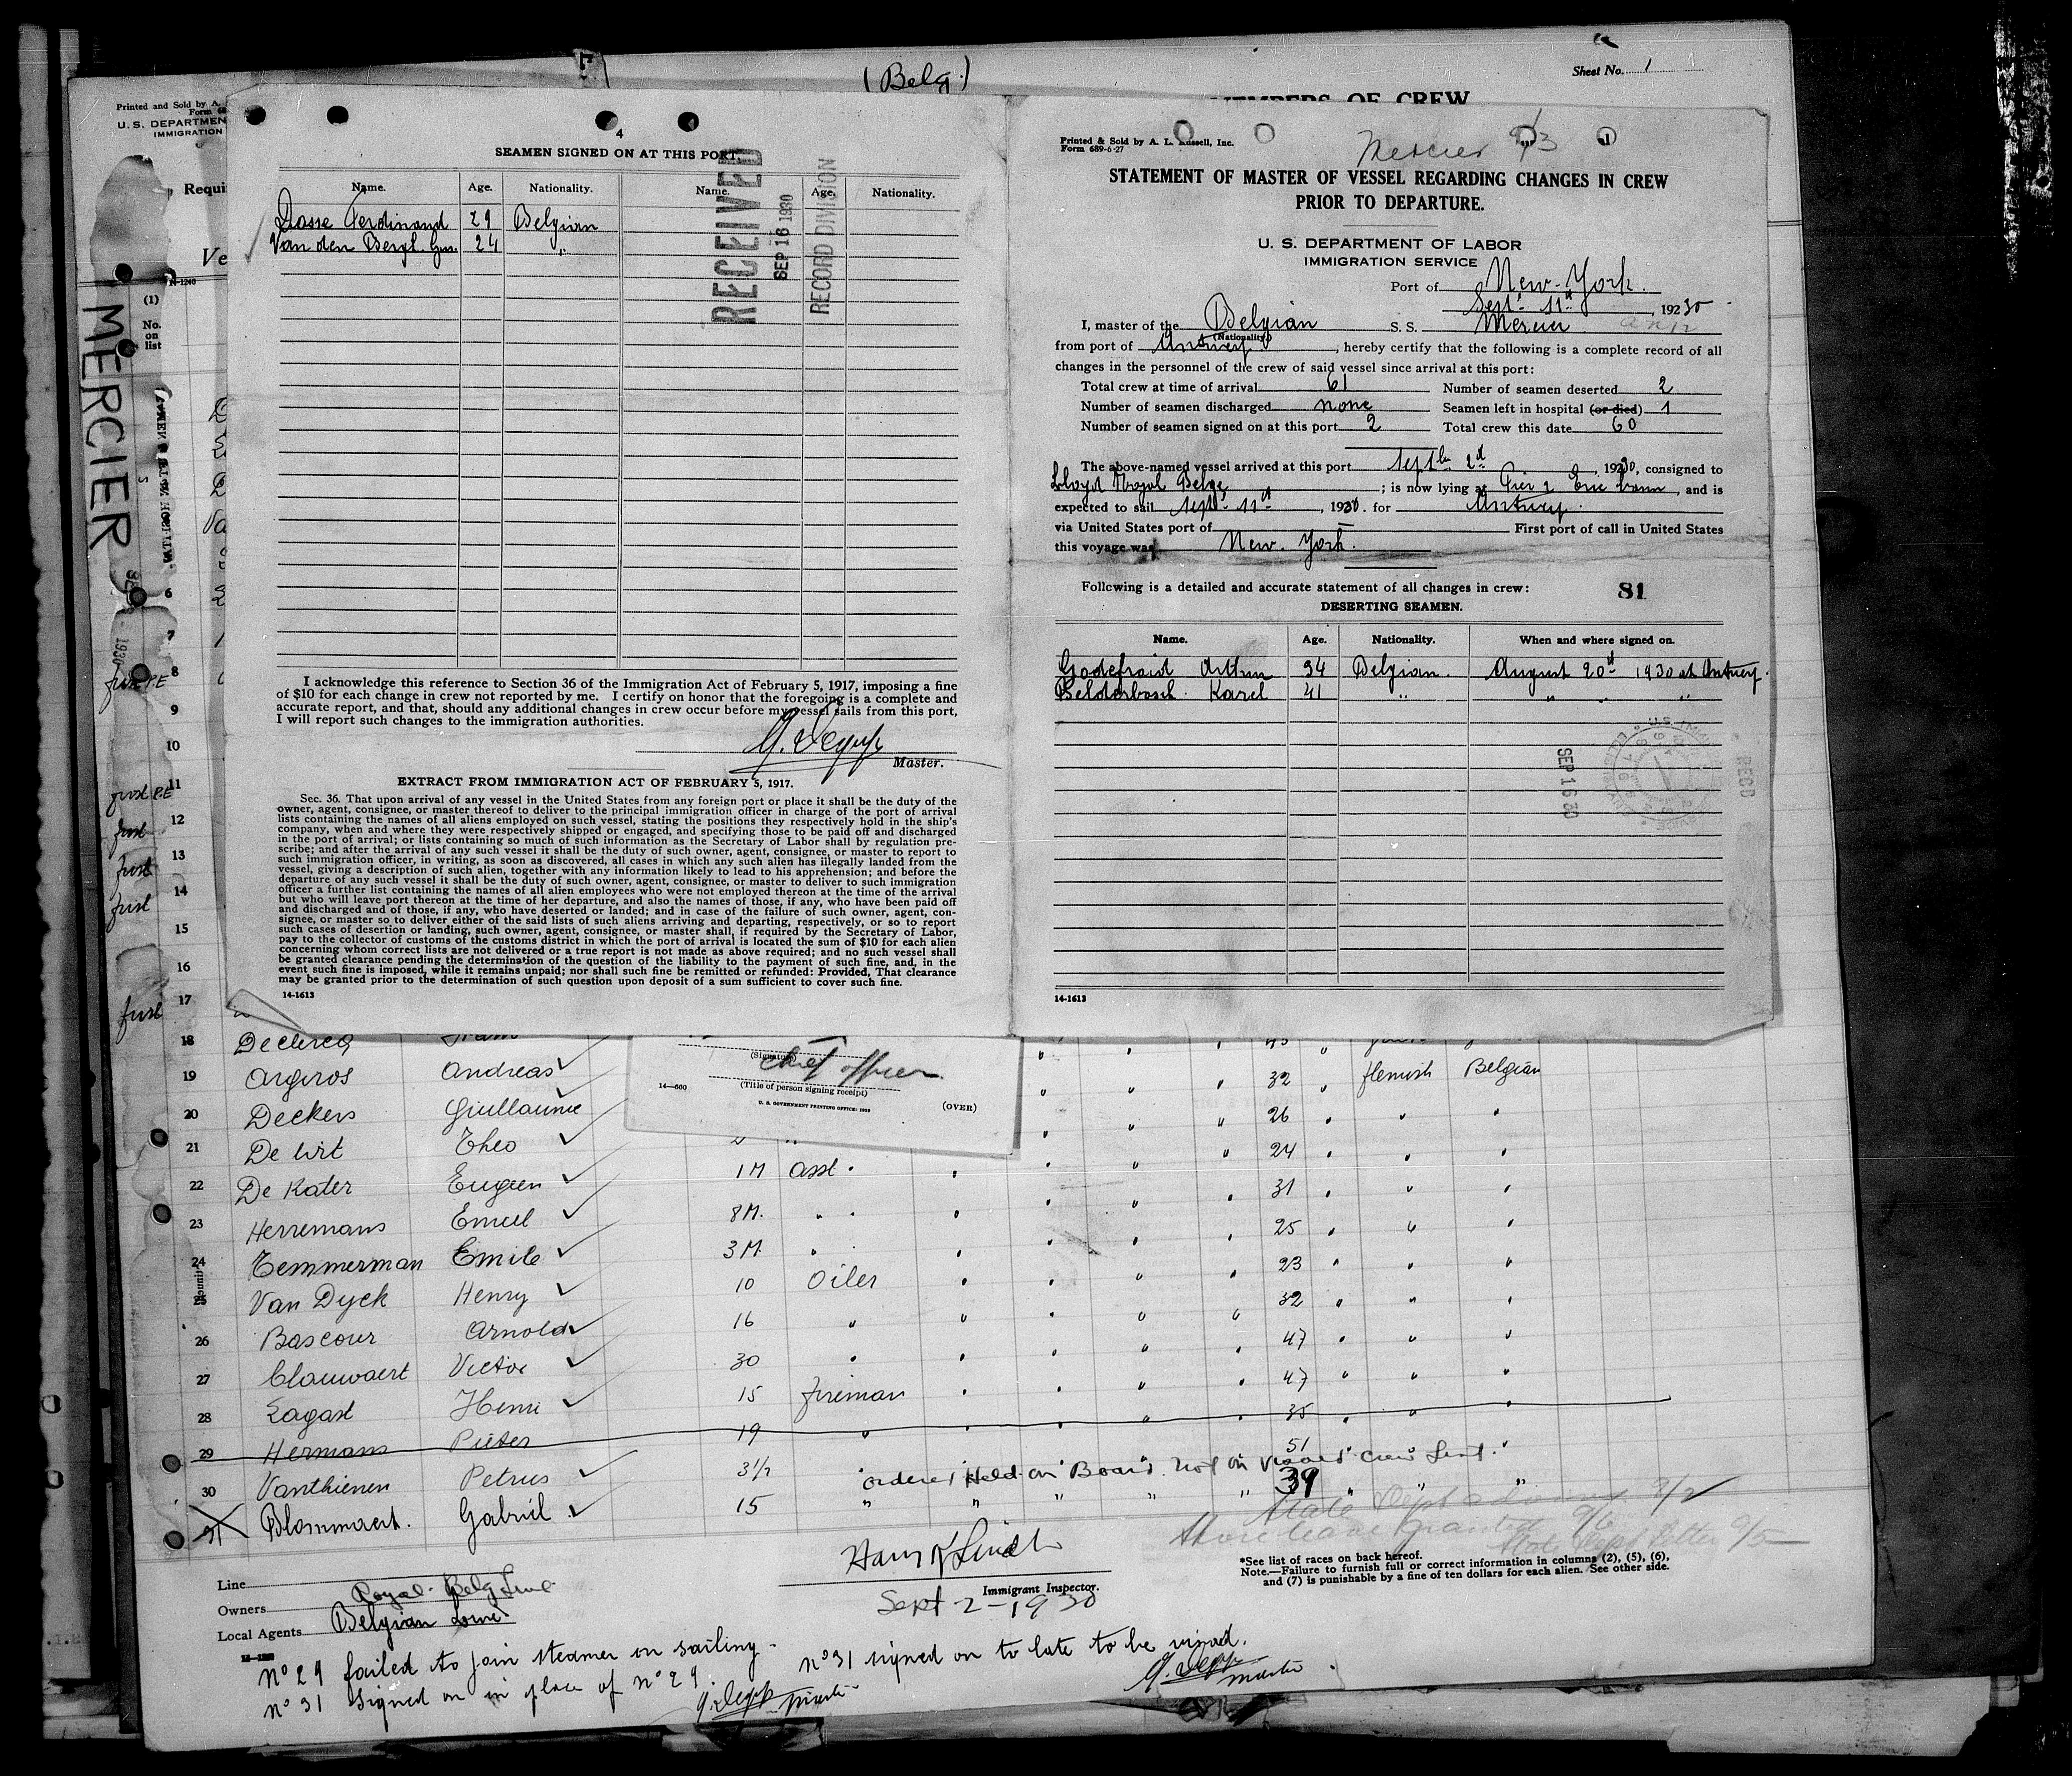 (Belg.)
Sheet No. 1
MEMBERS OF CREW
Printed and Sold by A.
U. S. DEPARTMEN
IMMIGRATION
Requi
Ve
(1)
No.
on
list
MERCIER
4
SEAMEN SIGNED ON AT THIS PORT.
Name. Age. Nationality. Name. Age. Nationality.
Dosse Ferdinand 29 Belgian
Van den Bergh Gus. 24 "
RECEIVED
SEP 16 1930
RECORD DIVISION
I acknowledge this reference to Section 36 of the Immigration Act of February 5, 1917, imposing a fine
of $10 for each change in crew not reported by me. I certify on honor that the foregoing is a complete and
accurate report, and that, should any additional changes in crew occur before my vessel sails from this port,
I will report such changes to the immigration authorities.
Master.
EXTRACT FROM IMMIGRATION ACT OF FEBRUARY 5, 1917.
Sec. 36. That upon arrival of any vessel in the United States from any foreign port or place it shall be the duty of the
owner, agent, consignee, or master thereof to deliver to the principal immigration officer in charge of the port of arrival
lists containing the names of all aliens employed on such vessel, stating the positions they respectively hold in the ship's
company, when and where they were respectively shipped or engaged, and specifying those to be paid off and discharged
in the port of arrival; or lists containing so much of such information as the Secretary of Labor shall by regulation pre-
scribe; and after the arrival of any such vessel it shall be the duty of such owner, agent, consignee, or master to report to
such immigration officer, in writing, as soon as discovered, all cases in which any such alien has illegally landed from the
vessel, giving a description of such alien, together with any information likely to lead to his apprehension; and before the
departure of any such vessel it shall be the duty of such owner, agent, consignee, or master to deliver to such immigration
officer a further list containing the names of all alien employees who were not employed thereon at the time of the arrival
but who will leave port thereon at the time of her departure, and also the names of those, if any, who have been paid off
and discharged and of those, if any, who have deserted or landed; and in case of the failure of such owner, agent, con-
signee, or master so to deliver either of the said lists of such aliens arriving and departing, respectively, or so to report
such cases of desertion or landing, such owner, agent, consignee, or master shall, if required by the Secretary of Labor,
pay to the collector of customs of the customs district in which the port of arrival is located the sum of $10 for each alien
concerning whom correct lists are not delivered or a true report is not made as above required; and no such vessel shall
be granted clearance pending the determination of the question of the liability to the payment of such fine, and, in the
event such fine is imposed, while it remains unpaid; nor shall such fine be remitted or refunded: Provided, That clearance
may be granted prior to the determination of such question upon deposit of a sum sufficient to cover such fine.
14-1613
Printed & Sold by A. L. Russell, Inc.
Form 689-6-27
Mercier 9/3
STATEMENT OF MASTER OF VESSEL REGARDING CHANGES IN CREW
PRIOR TO DEPARTURE.
U. S. DEPARTMENT OF LABOR
IMMIGRATION SERVICE
Port of New-York.
Sept. 11th, 19230
I, master of the Belgian S. S. Mercier
(Nationality)
from port of Antwerp, hereby certify that the following is a complete record of all
changes in the personnel of the crew of said vessel since arrival at this port:
Total crew at time of arrival 61 Number of seamen deserted 2
Number of seamen discharged none Seamen left in hospital (or died) 1
Number of seamen signed on at this port 2 Total crew this date 60
The above-named vessel arrived at this port Septbr 2d, 1930, consigned to
Lloyd Royal Belge; is now lying at Pier 2 Erie Bassin, and is
expected to sail Sept. 11th, 1930. for Antwerp.
via United States port of — First port of call in United States
this voyage was New. York.
Following is a detailed and accurate statement of all changes in crew: 81
DESERTING SEAMEN.
Name. Age. Nationality. When and where signed on.
Godefroid Arthur 34 Belgian. August 20th 1930 at Antwerp.
Belderbosch Karel 41 " " " "
SEP 16 30
REC'D
14-1613
6
7
8
9
10
11
12
13
14
15
16
17
(Signature)
Chief officer
14-660 (Title of person signing receipt)
U. S. GOVERNMENT PRINTING OFFICE: 1930 (OVER)
18 Declercq Frans 43
19 Argiros Andreas 32 flemish Belgian
20 Deckers Guillaume 26 " "
21 De Wit Theo 24 " "
22 De Kater Eugeen 1M asst. 31 " "
23 Herremans Emiel 8M. " 25 " "
24 Temmerman Emile 3M " 23 " "
25 Van Dyck Henry 10 Oiler 32 " "
26 Bascour Arnold 16 " 47 " "
27 Clauwaert Victor 30 " 47 " "
28 Lagast Henri 15 fireman 35 " "
29 Hermans Pieter 19 " 51
30 Vanthienen Petrus 3½ ordered Held on Board. Not on Visaed Crew List.
31 Blommaert. Gabriel 15 " " " " 39 " " "
State Dept
Shore leave granted 9/6
State Dept letter 9/5
Immigrant Inspector.
Sept 2-1930
*See list of races on back hereof.
Note.—Failure to furnish full or correct information in columns (2), (5), (6),
and (7) is punishable by a fine of ten dollars for each alien. See other side.
Line
Owners Royal Belg Line
Local Agents Belgian Line
N° 29 failed to join steamer on sailing.
N° 31 signed on in place of n° 29.
N° 31 signed on to late to be visaed.
master
master